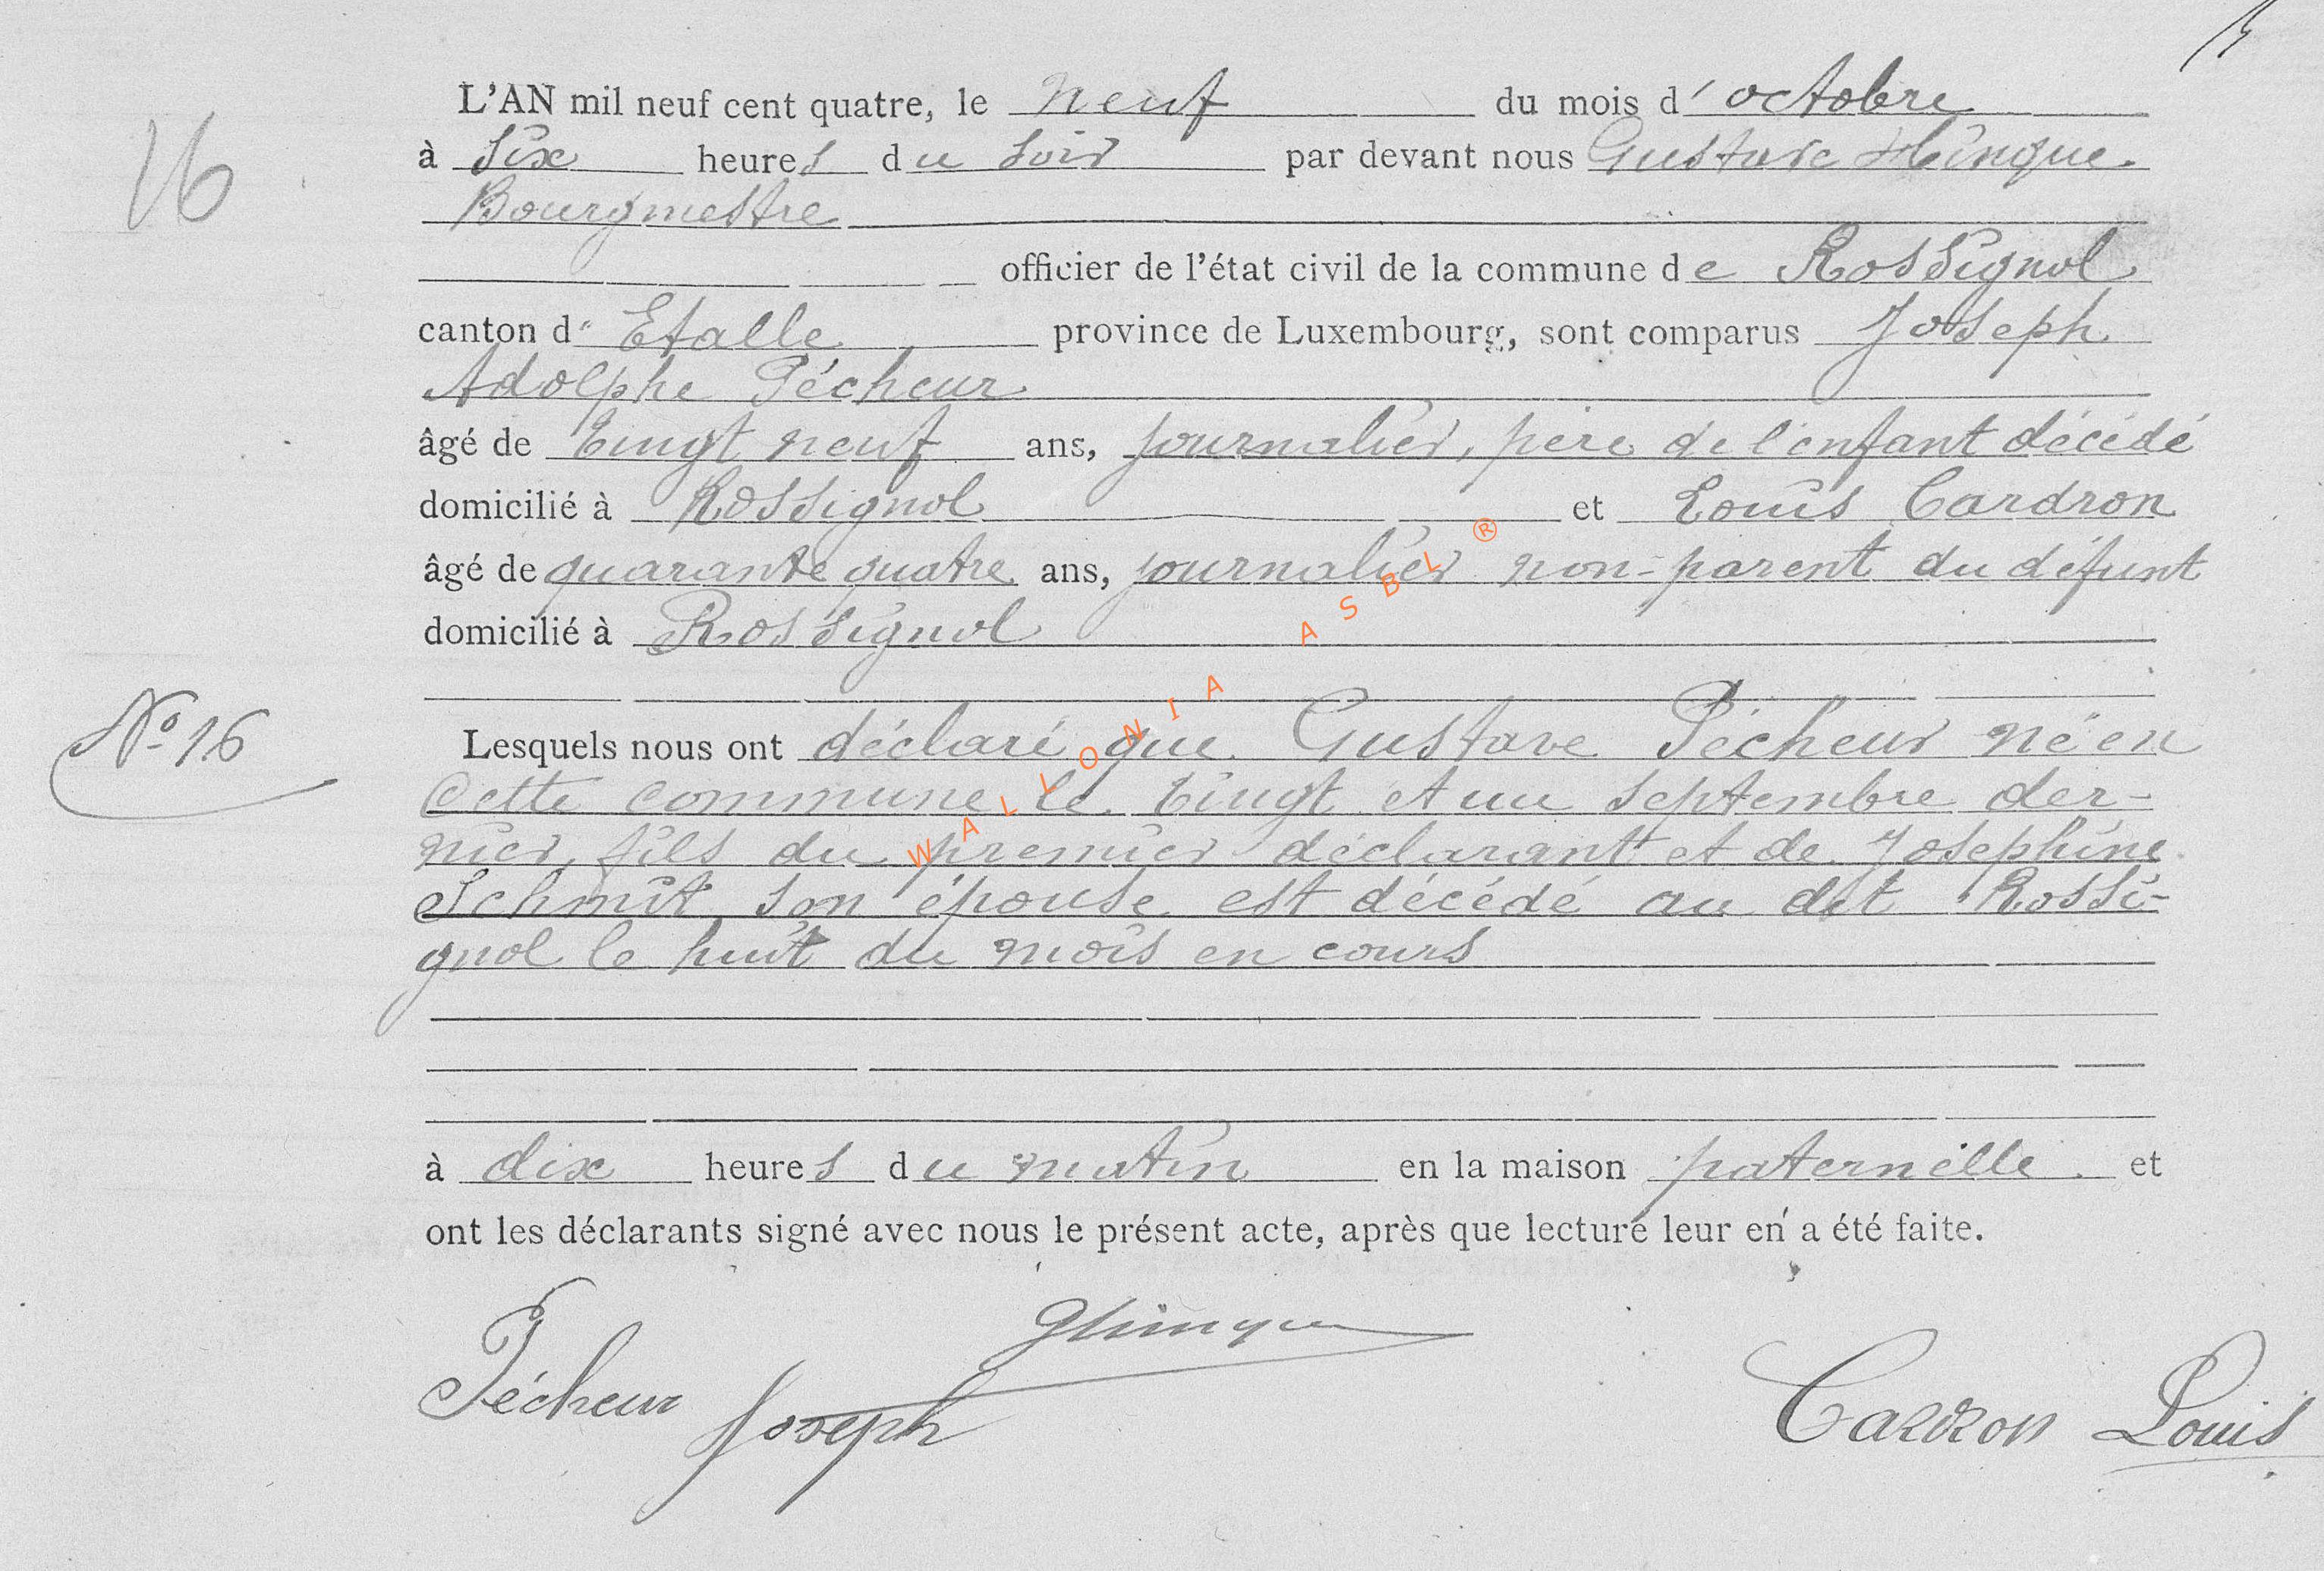 L'AN mil neuf cent quatre, le neuf du mois d'octobre
16
à six heures du soir par devant nous Gustave Hinque
Bourgmestre
officier de l'état civil de la commune de Rossignol
canton d'Etalle province de Luxembourg, sont comparus Joseph
Adolphe Pécheur
âgé de vingt neuf ans, journalier, père de l'enfant décédé
domicilié à Rossignol et Louis Cardron
âgé de quarante quatre ans, journalier non-parent du défunt
domicilié à Rossignol
N° 16
Lesquels nous ont déclaré que Gustave Pécheur né en
cette commune le vingt et un septembre der-
nier, fils du premier déclarant et de Josephine
Schmit son épouse est décédé au dit Rossi-
gnol le huit du mois en cours
à dix heures du matin en la maison paternelle et
ont les déclarants signé avec nous le présent acte, après que lecture leur en a été faite.
GHinque
Pécheur Joseph
Cardron Louis
WALLONIA ASBL ®